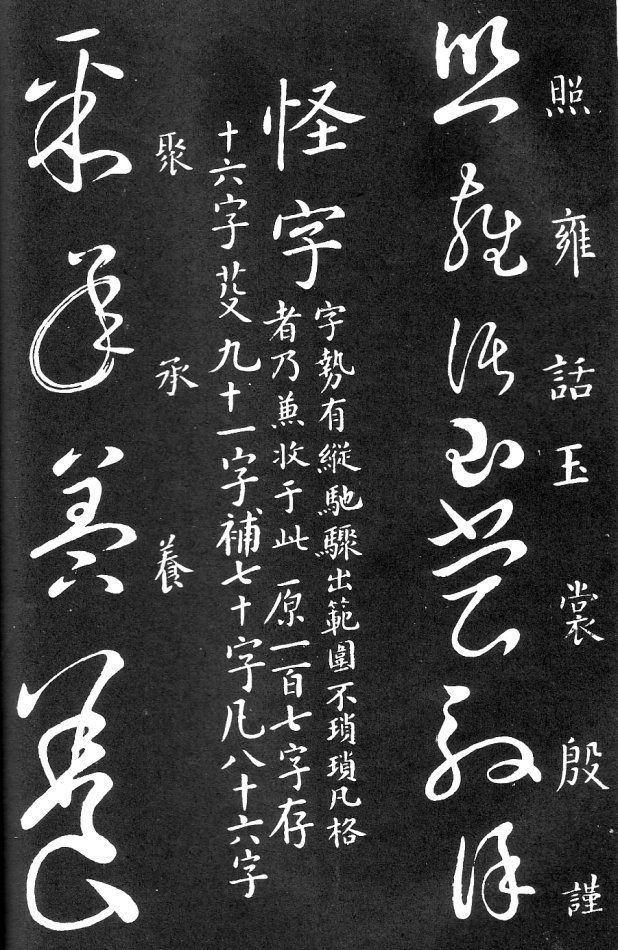 照雍話玉裳殷謹
照雍話玉裳殷謹
怪字
字勢有縱馳驟出範圍不瑣瑣凡格
者乃兼收于此 原一百七字存
十六字芟九十一字補七十字凡八十六字
聚承養
聚承養養